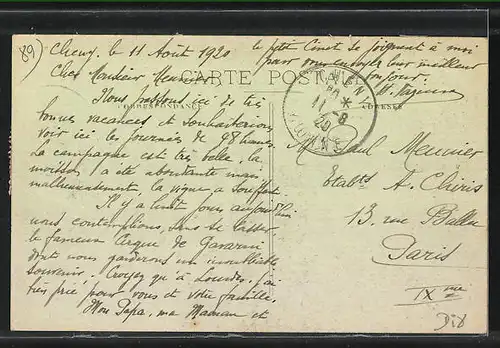 89)
Cheny, le 11 Août 1920
Cher Monsieur Meunier
CARTE POSTALE
CORRESPONDANCE
ADRESSE
Nous passons ici de très
bonnes vacances et souhaiterions
voir ici les journées de 48 heures.
La campagne est très belle, la
moisson a été abondante mais
malheureusement, la vigne a souffert.
Il y a huit jours aujourd'hui
nous contemplions, sans se lasser
le fameux Cirque de Gavarni
dont nous garderons un inoubliable
souvenir. Croyez qu'à Lourdes, j'ai
très prié pour vous et votre famille.
Mon Papa, ma Maman et
le petit se joignent à moi
pour vous envoyer leur meilleur
bonjour.
11 -8
20
YONNE
M Paul Meunier
Etablts A. Chiris
13 rue Ballu
Paris
IXme